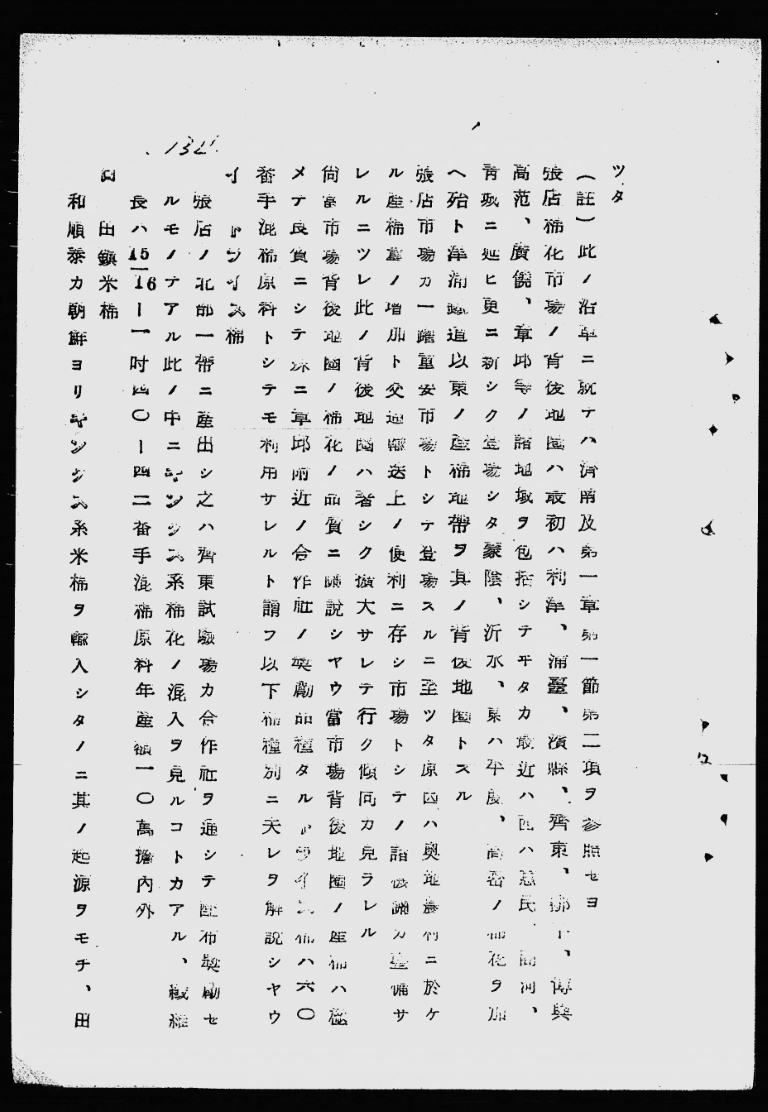 134
ツタ
(註)此ノ沿革ニ就テハ濟南及第一章第一節第二項ヲ參照セヨ
張店棉花市場ノ背後地圏ハ最初ハ利津、蒲臺、濱縣、齊東、博興
高苑、廣饒、章邱等ノ諸地域ヲ包括シテヰタカ最近ハ西ハ惠民、商河、
青城ニ延ヒ更ニ新シク登場シタ蒙陰、沂水、東ハ平度、高密ノ棉花ヲ加
ヘ殆ト津浦鐵道以東ノ產棉地帶ヲ其ノ背後地圏トスル
張店市場カ一躍重要市場トシテ登場スルニ至ツタ原因ハ奧地農村ニ於ケ
ル產棉量ノ增加ト交通輸送上ノ便利ニ存シ市場トシテノ諸機關カ整備サ
レルニツレ此ノ背後地圏ハ著シク擴大サレテ行ク傾向カ見ラレル
尚當市場背後地圏ノ棉花ノ品質ニ關說シヤウ當市場背後地圏ノ產棉ハ極
メテ良質ニシテ殊ニ章邱附近ノ合作社ノ獎勵品種タルトライス棉ハ六〇
番手混棉原料トシテモ利用サレルト謂フ以下棉種別ニ夫レヲ解說シヤウ
イ トライス棉
張店ノ北部一帶ニ產出シ之ハ齊東試驗場カ合作社ヲ通シテ配布獎勵セ
ルモノテアル此ノ中ニキングス系棉花ノ混入ヲ見ルコトカアル、纖維
長ハ15/16ー一吋四〇ー四二番手混棉原料年產額一〇萬擔內外
ロ 田鎭米棉
和順泰カ朝鮮ヨリキングス系米棉ヲ輸入シタノニ其ノ起源ヲモチ、田